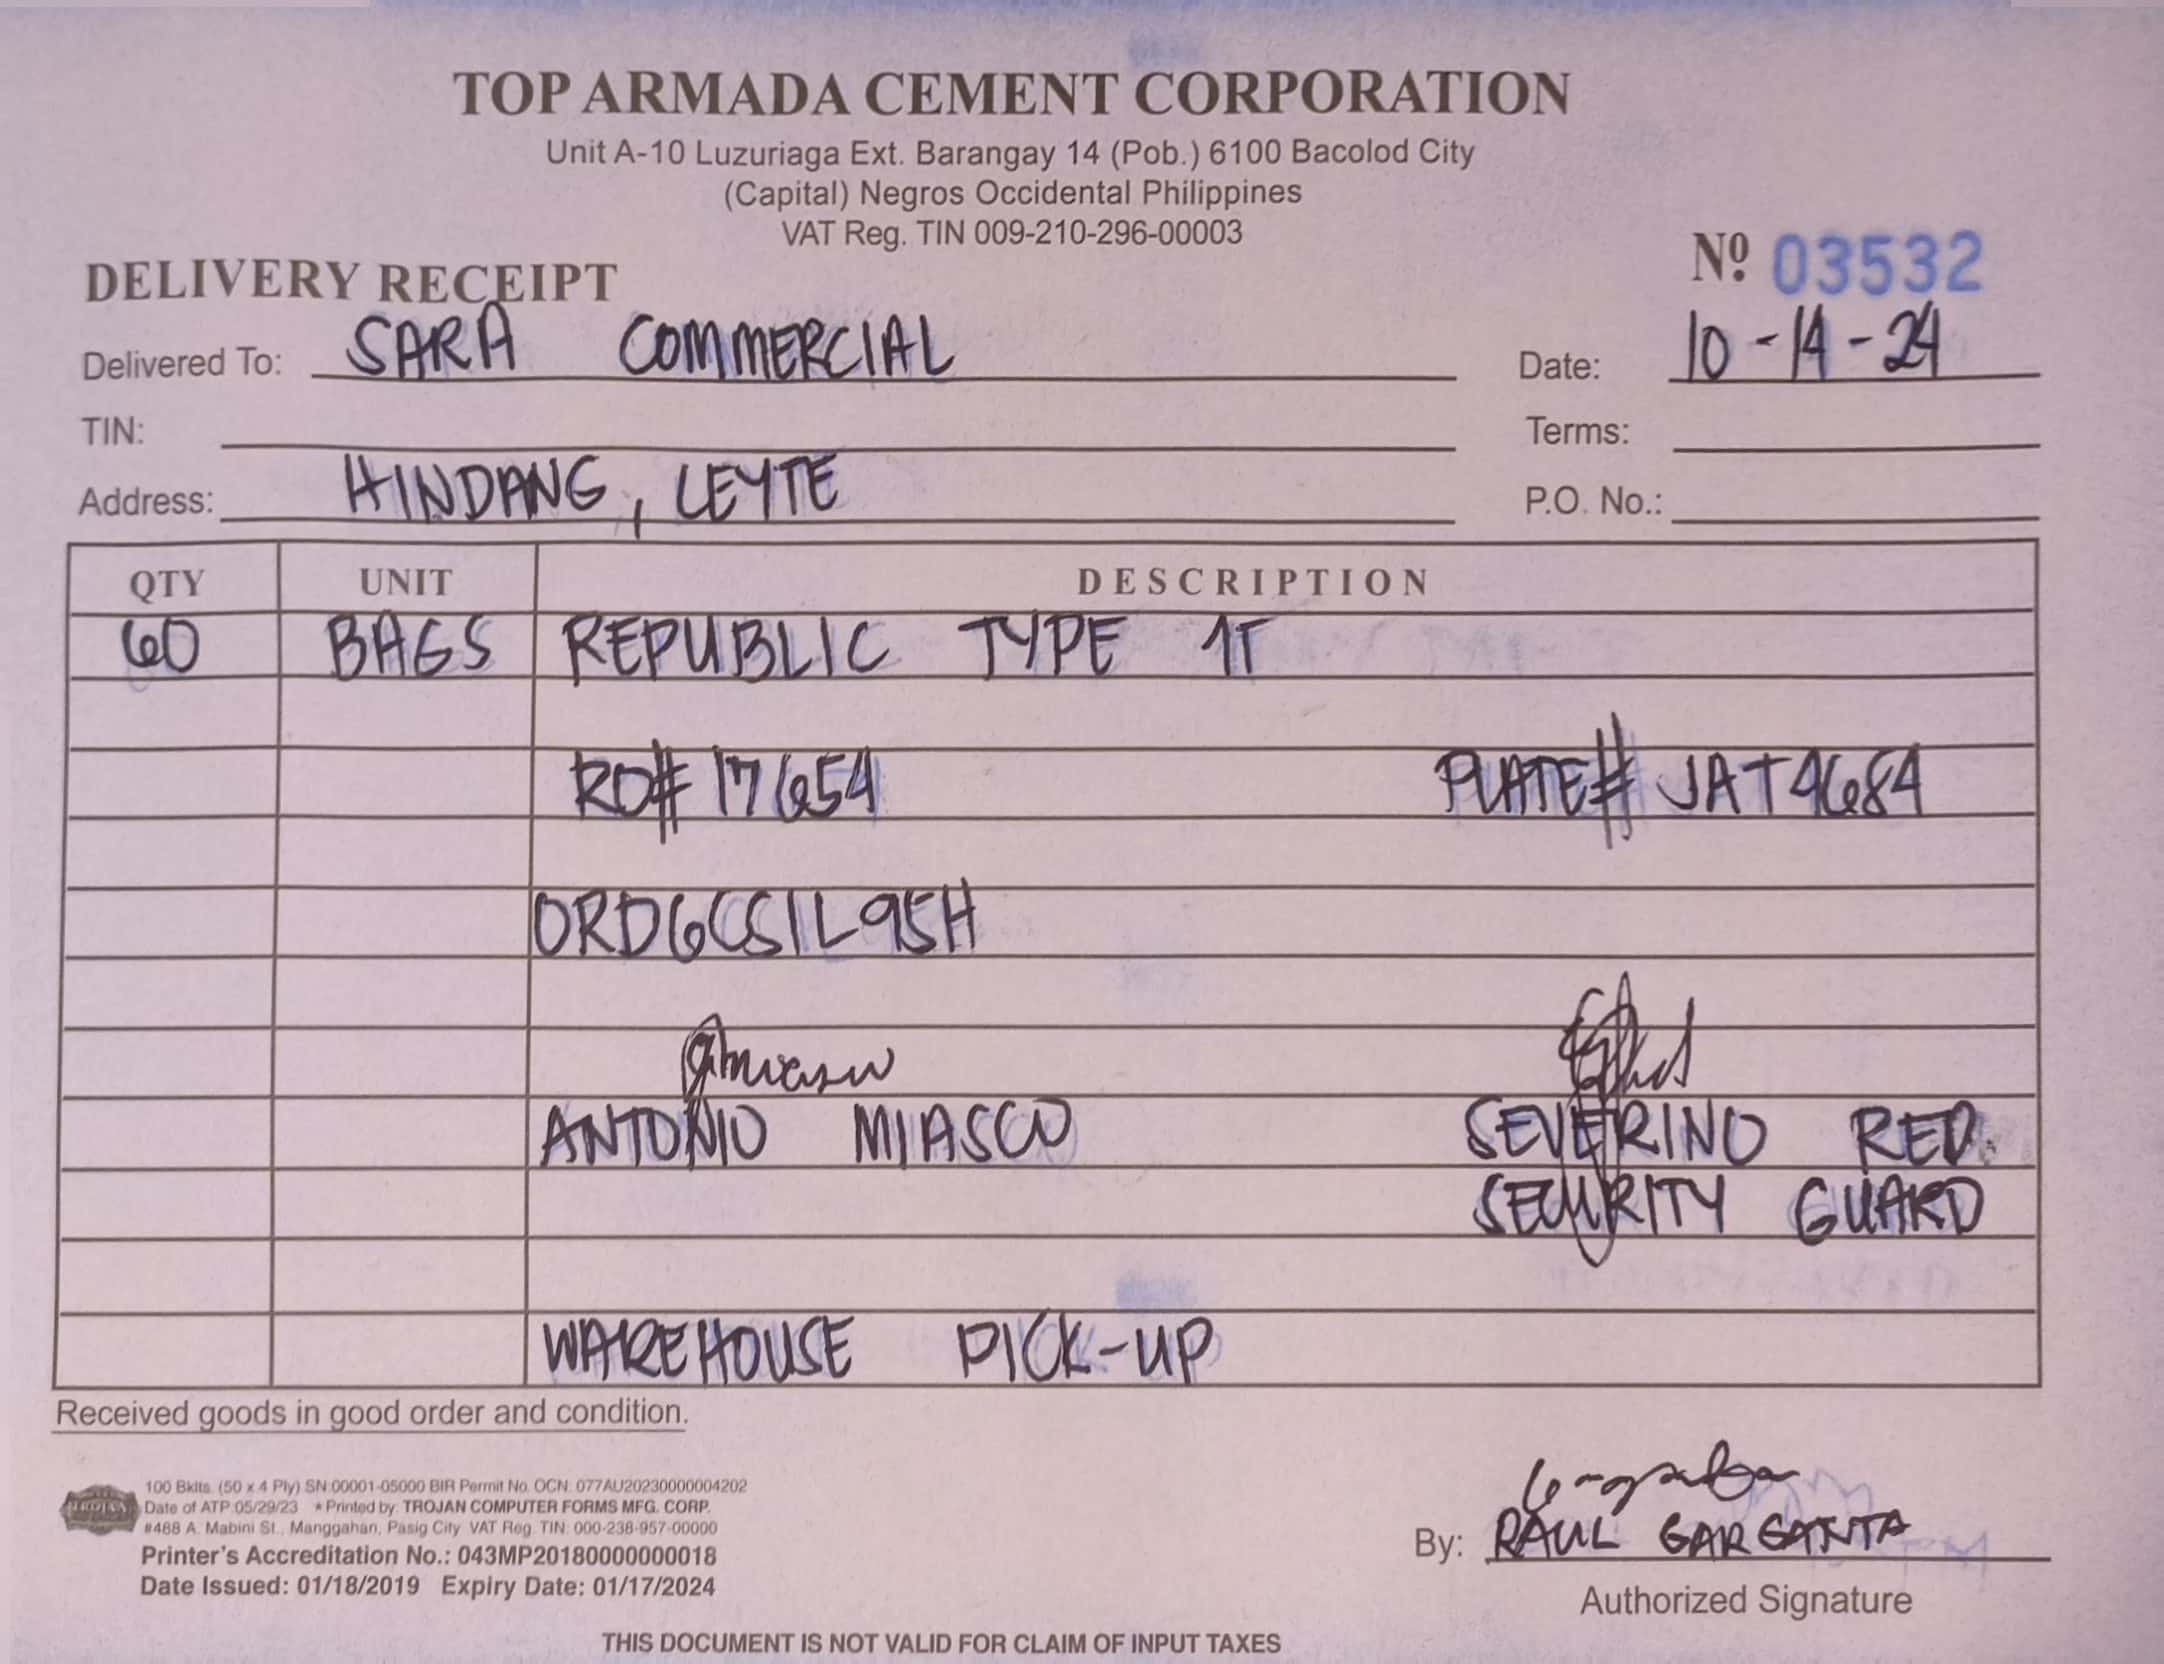 TOP ARMADA CEMENT CORPORATION
Unit A-10 Luzuriaga Ext. Barangay 14 (Pob.) 6100 Bacolod City
(Capital) Negros Occidental Philippines
VAT Reg. TIN 009-210-296-00003
Nº 03532
DELIVERY RECEIPT
Delivered To: SARA COMMERCIAL Date: 10-14-24
TIN: Terms:
Address: HINDANG, LEYTE P.O. No.:
QTY UNIT DESCRIPTION
60 BAGS REPUBLIC TYPE 1T
RO# 17654 PLATE# JAT4684
ORD6CS1L95H
ANTONIO MIASCO SEVERINO RED.
SECURITY GUARD
WAREHOUSE PICK-UP
Received goods in good order and condition.
100 Bklts. (50 x 4 Ply) SN:00001-05000 BIR Permit No. OCN: 077AU20230000004202
Date of ATP:05/29/23 * Printed by: TROJAN COMPUTER FORMS MFG. CORP.
#488 A. Mabini St., Manggahan, Pasig City VAT Reg. TIN: 000-238-957-00000
Printer's Accreditation No.: 043MP20180000000018
Date Issued: 01/18/2019 Expiry Date: 01/17/2024
By: RAUL GARGANTA
Authorized Signature
THIS DOCUMENT IS NOT VALID FOR CLAIM OF INPUT TAXES